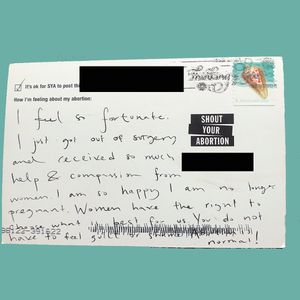 It's ok for SYA to post the
How I'm feeling about my abortion:
SHOUT
YOUR
ABORTION
I feel so fortunate.
I just got out of surgery
and received so much
help & compassion from
women. I am so happy I am no longer
pregnant. Women have the right to
choose what is best for us. You do not
have to feel guilt or shame. Abortion is
normal!